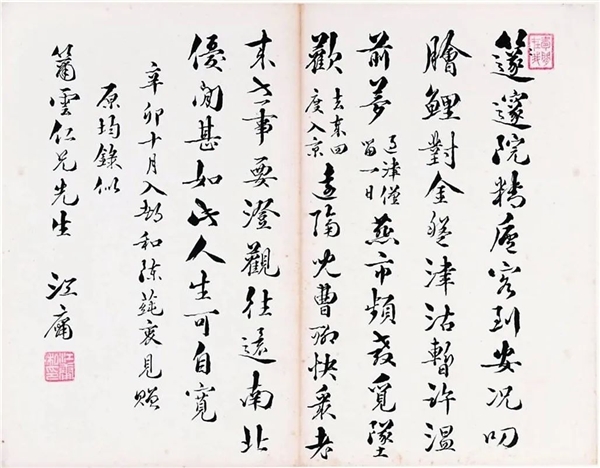 邃院精廬客到安況叨
膾鯉對金盤津沽暫許溫
前夢過津僅
留一日燕市頻教覓墜
歡去來四
度入京遠隔兒曹聊快老
來世事要澄觀往還南北
優閒甚如此人生可自寬
辛卯十月入都和陳蒓衷見贈
原均錄似
簫雲仁兄先生 江庸